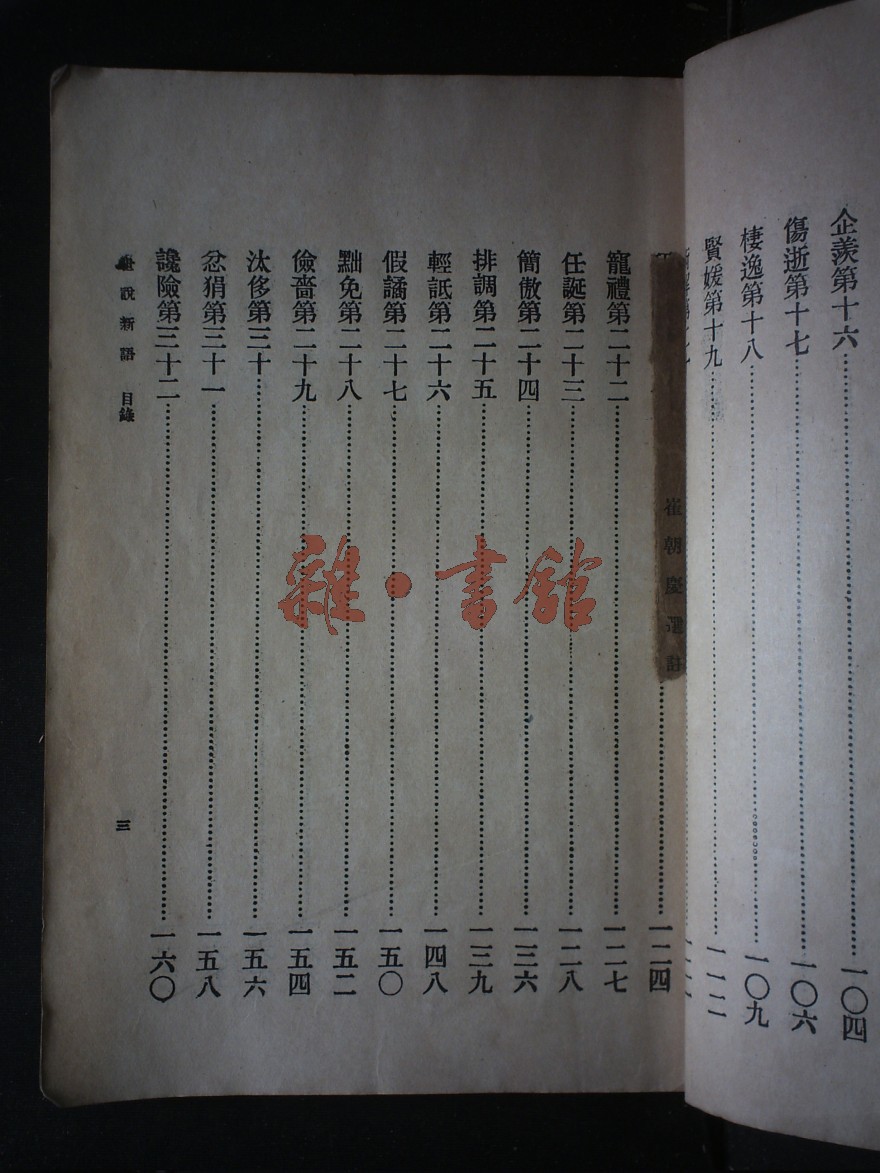 企羨第十六……一〇四
傷逝第十七……一〇六
棲逸第十八……一〇九
賢媛第十九……一一二
一二四
崔朝慶選註
寵禮第二十二……一二七
任誕第二十三……一二八
簡傲第二十四……一三六
排調第二十五……一三九
輕詆第二十六……一四八
假譎第二十七……一五〇
黜免第二十八……一五二
儉嗇第二十九……一五四
汰侈第三十……一五六
忿狷第三十一……一五八
讒險第三十二……一六〇
世說新語 目錄 三
雜·書館